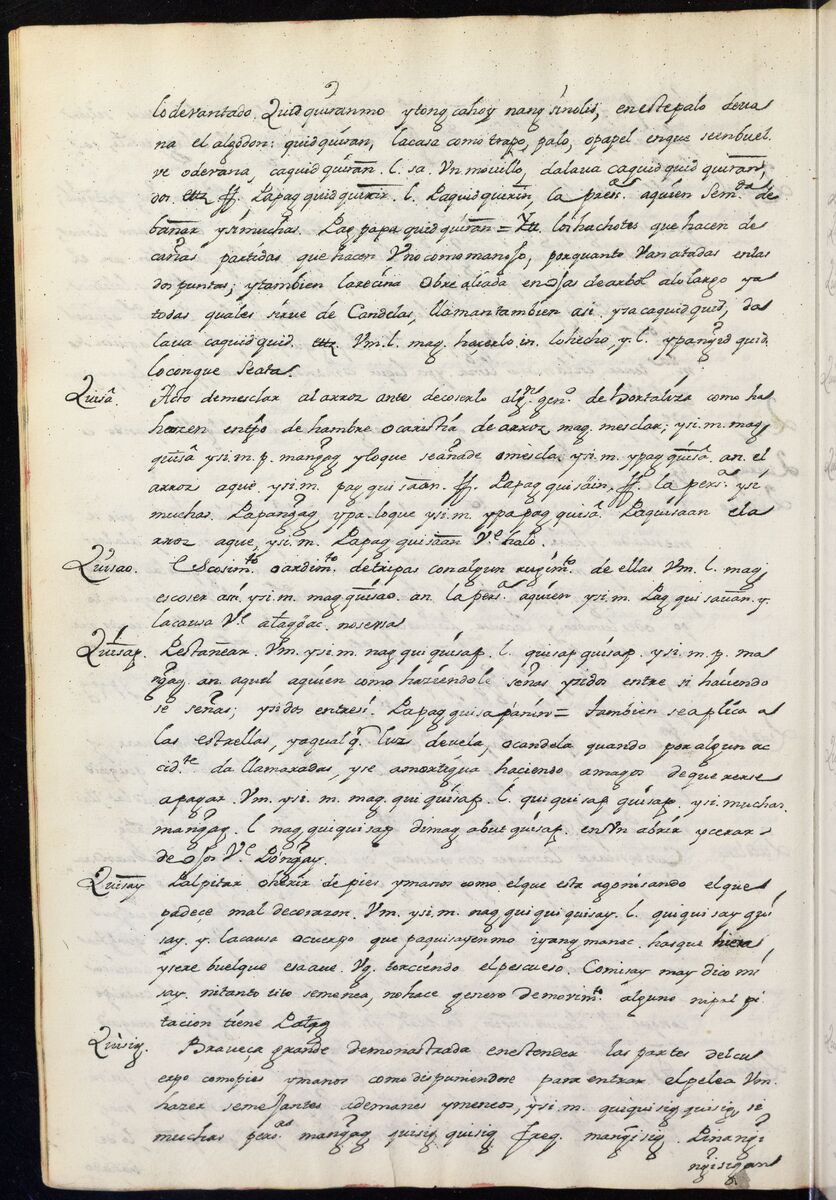 lo devantado, Quidquiranmo ytong cahoy nang sinolid, en este palo deva
na el algodon: quidquíran, la casa como trapo, palo, o papel en que se enbuel
ve o devana, caquidquiran. l. sa. Vn movillo, dalava caquidquid quiran,
dos ff. Papag quidquirir. l. Paquidquirin, la pers.ª aquien
bañar y si muchas. Pag papa quidquiran = los hachotes que hacen de
cañas partidas que hacen Vno como manojo, por quanto Van atadas en las
dos puntas; y tambien la recina en ojas de arbol alo largo ya
todas quales sirve de Candelas, llaman tambien asi ysa caquidquid, da
lava caquidquid. Vm. l. mag. hacerlo in. lo hecho, y. l. ypangidquid.
lo conque se ata.
Quisâ. Acto de mesclar al arroz ante de coserlo alg. gen.º de hortaliza como ha
hazen en tp̃o de hambre o caristia de arroz mag. mesclar; y si. m. mag
quisâ y si. m. p. mangag y lo que se añade o mescla y si. m. ypag quisâ. an. el
arroz aque. y si. m. pag quisaan. ff. Papag quisain, ff. la pers.ª y si
muchas. Papangag, ypa. lo que y si. m. ypapag quisâ. Paquisaan el a
rroz aque, y si. m. Papag quisaan V.e halo.
Quisao. Escosim.to o ardim.to de tripas con algun rugim.to de ellas Vm. l. mag,
escoser an. y si. m. mag quisao. an. la pers.ª aquien y si. m. Pag qui sauan. y.
la causa V.e
Quisap. Pestañear. Vm. y si. m. nag qui quisap. l. quisap quisap. y si. m. p. ma
ngag. an. aquel aquien como haziendole señas y si dos entre si haciendo
se señas; y si dos entresi. Papag quisapanin = tambien se aplica a
las estrellas, yaqualq.r luz de vela, o candela quando por algun ac
cid.te da llamaradas, y se amortigua haciendo amagos de quererse
apagar. Vm. y si. m. mag. qui quisap. l. qui quisap quisap. y si muchas.
mangag. l nag quiquisap dimag abut quisap. en Vn abrir y cerar
de ojos V.e Pongay.
Quisay Palpitar o herir de pies y manos como el que esta agonisando el que
padece mal de corason. Vm. y si. m. nag qui qui quisay. l. qui qui say qui
say. y. la causa o cuerpo que paquisayenmo iyang manoc. has que hiera
y se rebuelque esa ave. Vg. torciendo el pescueso. Comisay may dico mi
say. ni tanto tito se menea, no hace genero de movim.to alguno ni pal pi
tacion tiene Patag
Quisig. Braveça grande demonastrada en estender las partes del cu
erpo como pies y manos como dispuniendose para entrar el pelea Vm.
hazer semejantes ademanes y meneos, y si. m. quiquisig quisig, si
muchas pers.as mangag quisig quisig freq. mangisig. Pinangi
ngisigan